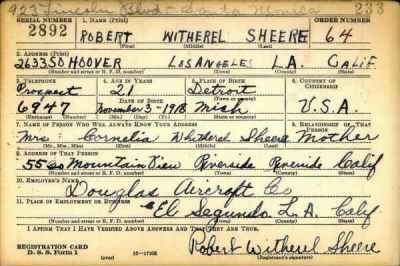 923 Lincoln Blvd - Santa Monica 233
SERIAL NUMBER 1. NAME (Print) ORDER NUMBER
2892 ROBERT WITHEREL SHEERE 64
(First) (Middle) (Last)
2. ADDRESS (Print)
2633 SO HOOVER LOS ANGELES L.A. CALIF.
(Number and street or R. F. D. number) (Town) (County) (State)
3. TELEPHONE 4. AGE IN YEARS 5. PLACE OF BIRTH 6. COUNTRY OF CITIZENSHIP
Prospect 21 Detroit
DATE OF BIRTH (Town or county)
6947 November-3-1918 Mich U.S.A.
(Exchange) (Number) (Mo.) (Day) (Yr.) (State or country)
7. NAME OF PERSON WHO WILL ALWAYS KNOW YOUR ADDRESS 8. RELATIONSHIP OF THAT PERSON
Mrs Cornelia Whitherel Sheere Mother
(Mr., Mrs., Miss) (First) (Middle) (Last)
9. ADDRESS OF THAT PERSON
Mountain View Riverside Riverside Calif
(Number and street or R. F. D. number) (Town) (County) (State)
10. EMPLOYER'S NAME
Douglas Aircraft Co
11. PLACE OF EMPLOYMENT OR BUSINESS
El Segundo L.A. Calif.
(Number and street or R. F. D. number) (Town) (County) (State)
I AFFIRM THAT I HAVE VERIFIED ABOVE ANSWERS AND THAT THEY ARE TRUE.
REGISTRATION CARD
D. S. S. Form 1 16-17105 Robert Witherel Sheere
(Registrant's signature)